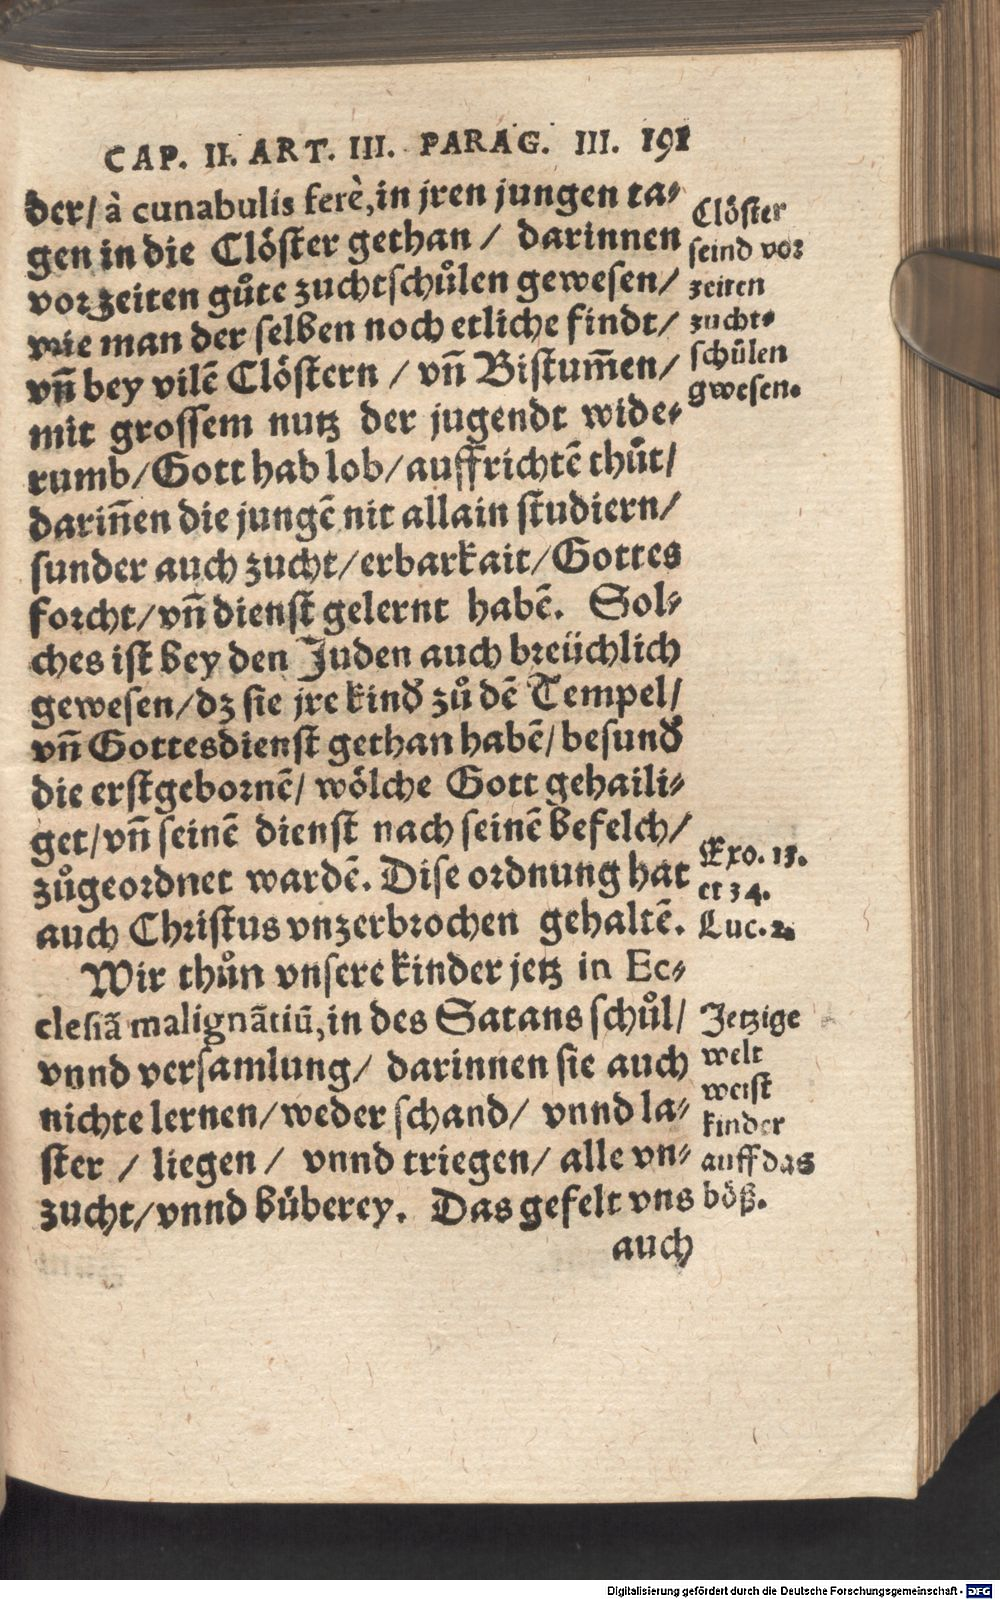 CAP. II. ART. III. PARAG. III. 191
der/ à cunabulis ferè, in jren jungen ta⸗
gen in die Clöster gethan / darinnen
vor zeiten gůte zuchtschůlen gewesen/
wie man der selben noch etliche findt/
vñ bey vilē Clöstern / vñ Bistum̃en/
mit grossem nutz der jugendt wide⸗
rumb/ Gott hab lob/ auffrichtē thůt/
dariñen die jungē nit allain studiern/
sunder auch zucht/ erbarkait/ Gottes
forcht/ vñ dienst gelernt habē. Sol⸗
ches ist bey den Juden auch breüchlich
gewesen/ dz sie jre kind zů dē Tempel/
vñ Gottesdienst gethan habē/ besund
die erstgebornē/ wölche Gott gehaili⸗
get/ vñ seinē dienst nach seinē befelch/
zůgeordnet wardē. Dise ordnung hat
auch Christus vnzerbrochen gehaltē.
Wir thůn vnsere kinder jetz in Ec⸗
clesiā malignātiū, in des Satans schůl/
vnnd versamlung/ darinnen sie auch
nichte lernen/ weder schand/ vnnd la⸗
ster / liegen / vnnd triegen/ alle vn⸗
zucht/ vnnd büberey. Das gefelt vns
auch
Clöster
seind vor
zeiten
zucht⸗
schůlen
gwesen.
Exo. 13.
et 34.
Luc. 2.
Jetzige
welt
weist
kinder
auff das
böß.
Digitalisierung gefördert durch die Deutsche Forschungsgemeinschaft - DFG